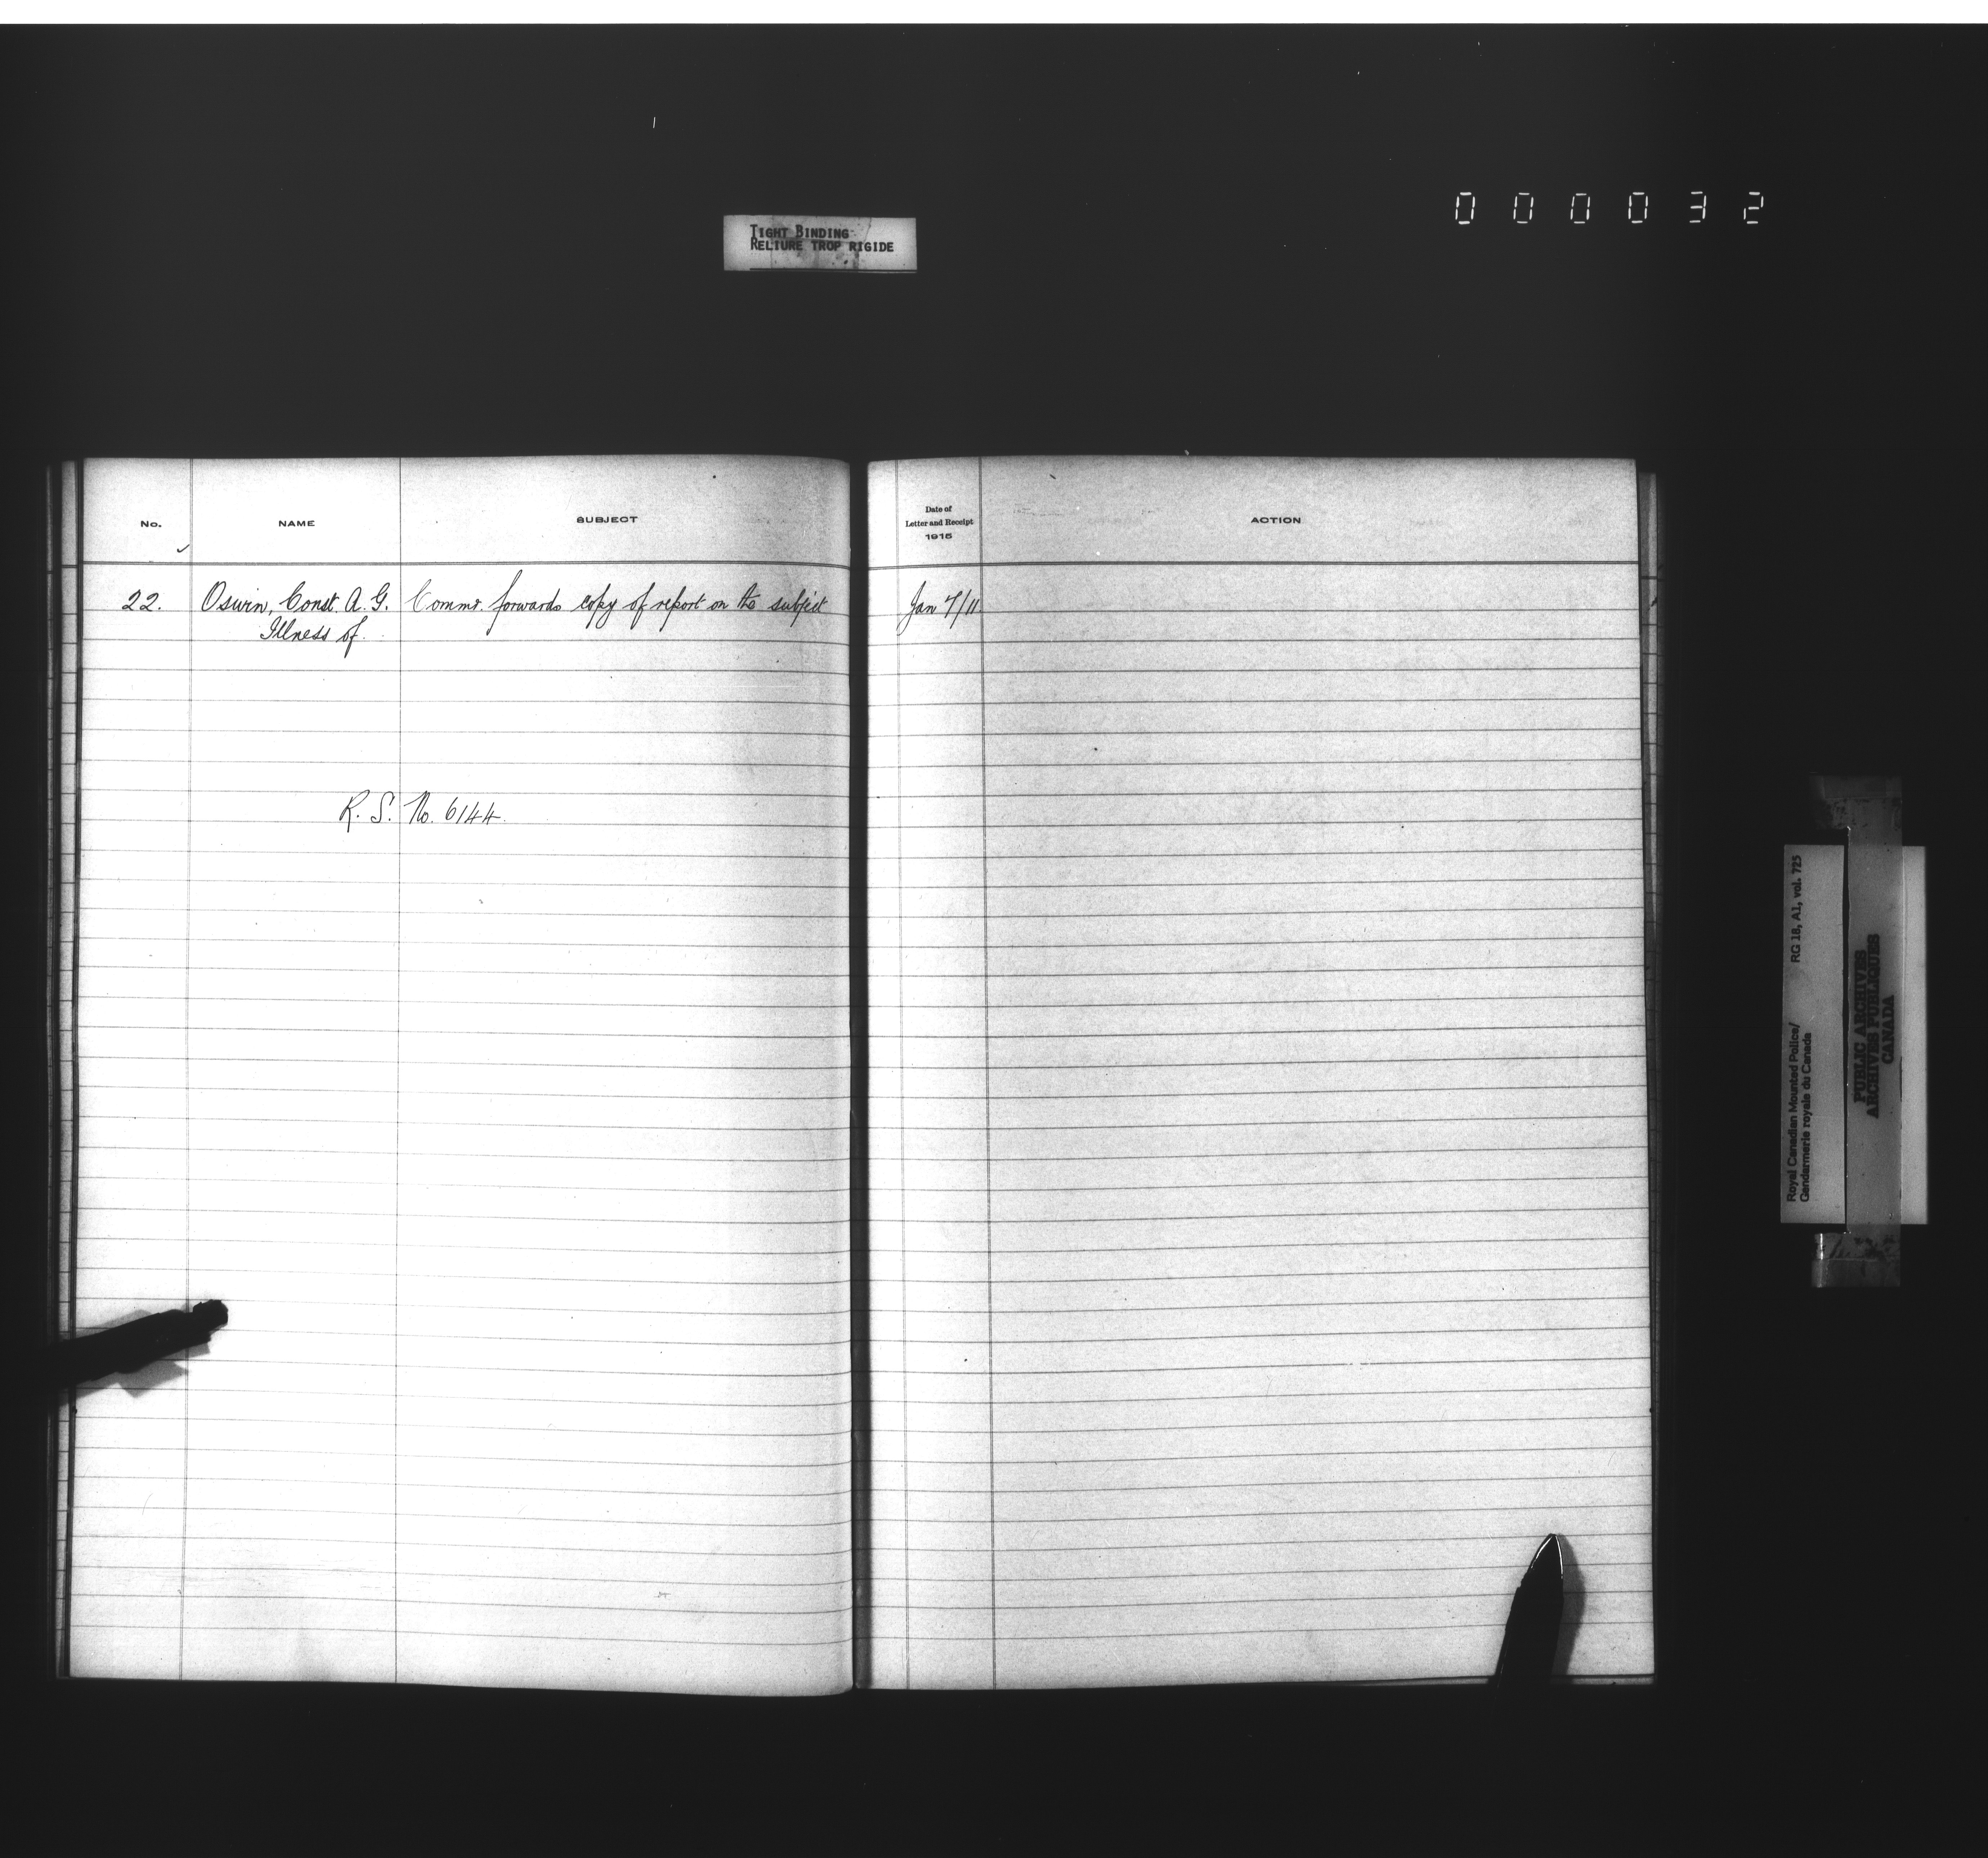 000032
TIGHT BINDING
RELIURE TROP RIGIDE
No. NAME SUBJECT
Date of
Letter and Receipt
1915
ACTION
22. Oswin, Const. A. G. Commr. forwards copy of report on the subject Jan 7/11
Illness of
R. S. No. 6144.
Royal Canadian Mounted Police/ RG 18, A1, vol. 725
Gendarmerie royale du Canada
PUBLIC ARCHIVES
ARCHIVES PUBLIQUES
CANADA